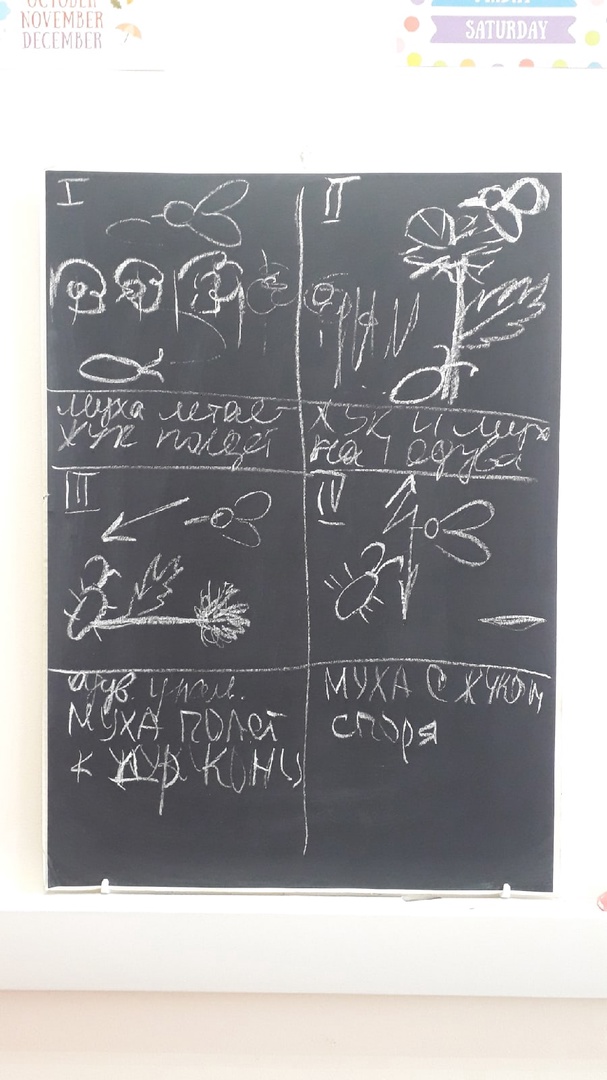 OCTOBER
NOVEMBER
DECEMBER
SATURDAY
I
II
муха летает
жук ползет
жук и муха
на одува
III
IV
одув упал.
МУХА ПОЛЕТ
К ЖУК
МУХА С ЖУКОМ
споря